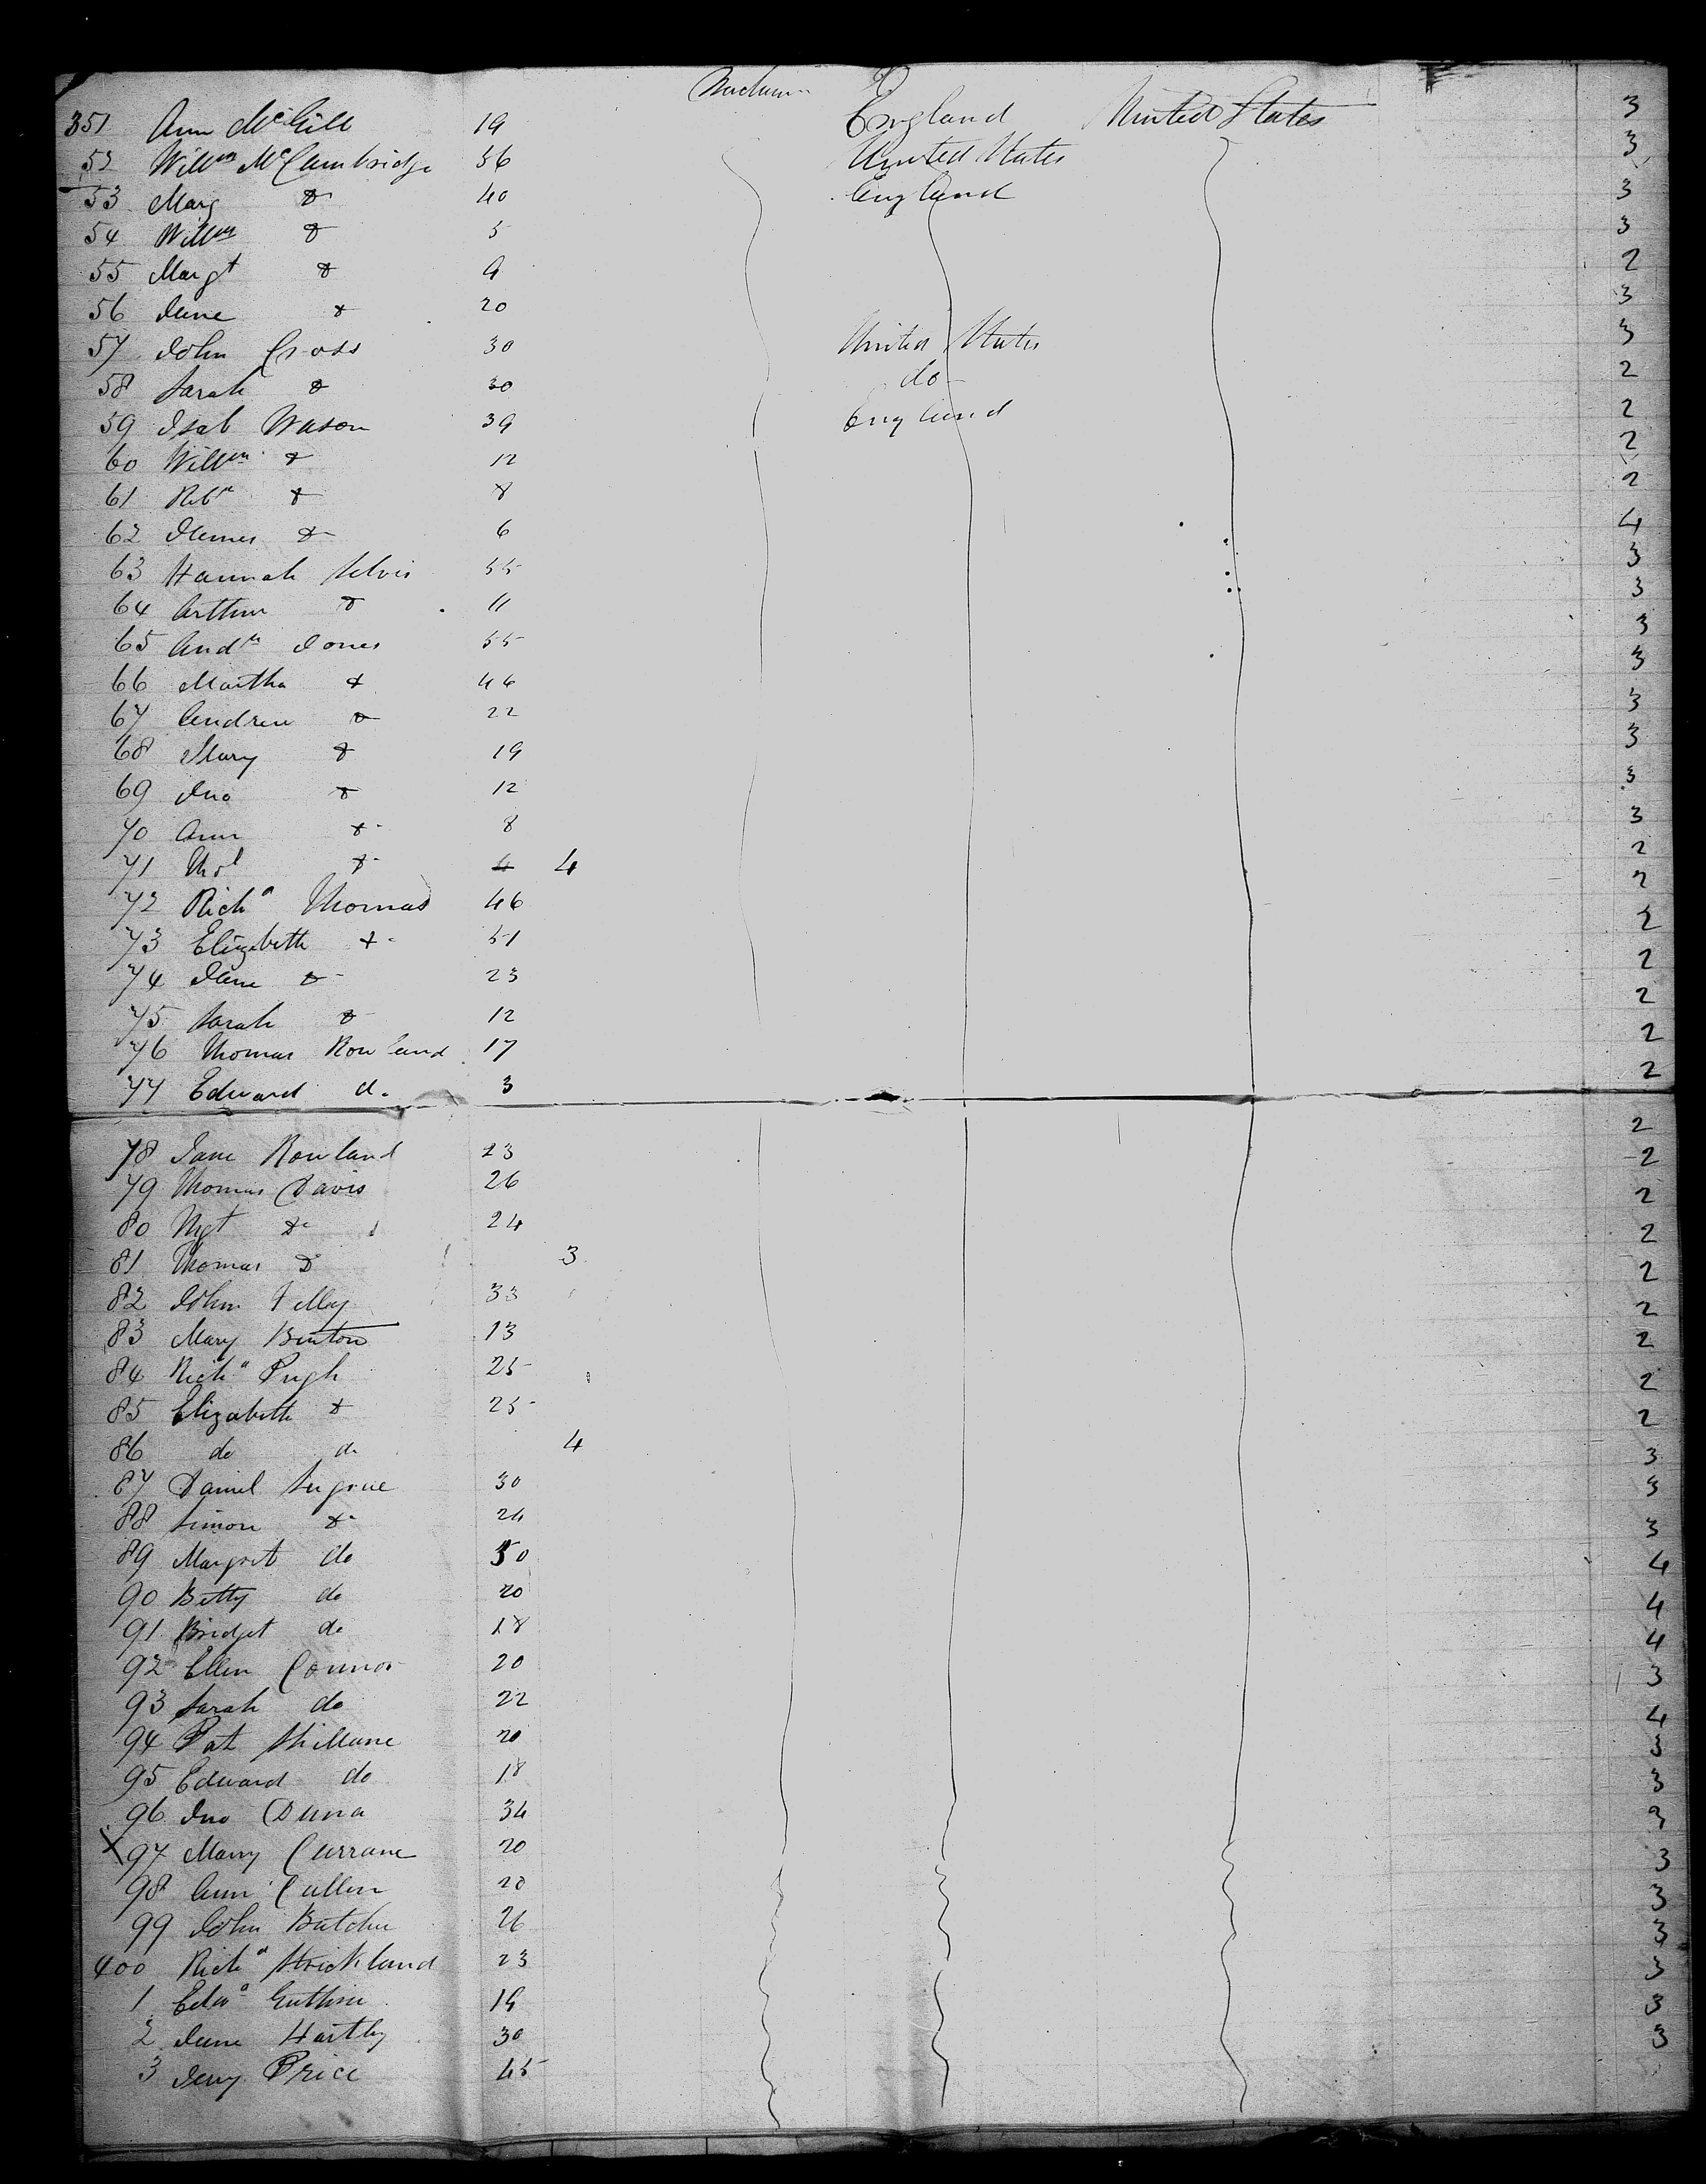 351 Ann McGill 19 England United States 3
52 Willm McCambridge 56 United States 3
53 Marg do 40 England 3
54 Willm do 5 3
55 Margt do 9 2
56 Jane do 20 3
57 John Cross 30 United States 3
58 Sarah do 30 do 2
59 Isab Wason 39 England 2
60 Willm do 12 2
61 do 8 2
62 James do 6 4
63 Hannah 55 3
64 Arthur do 11 3
65 Andw Jones 55 3
66 Martha do 46 3
67 Andrew do 22 3
68 Mary do 19 3
69 Jno do 12 3
70 Ann do 8 3
71 do 4 2
72 Richd Thomas 46 2
73 Elizabeth do 51 2
74 Jane do 23 2
75 Sarah do 12 2
76 Thomas Rowland 17 2
77 Edward do 3 2
78 Jane Rowland 23 2
79 Thomas Davis 26 2
80 Mgt do 24 2
81 Thomas do 3 2
82 John 33 2
83 Mary Benton 13 2
84 Richd Pugh 25 2
85 Elizabeth do 25 2
86 do do 4 2
87 Daniel Sugrue 30 3
88 Simon do 24 3
89 Margret do 50 3
90 Betty do 20 4
91 Bridget do 18 4
92 Ellen Connor 20 4
93 Sarah do 22 3
94 Pat 20 4
95 Edward do 18 3
96 Jno 34 3
X 97 Mary Currane 20 3
98 Ann Cullen 20 3
99 John Butcher 26 3
400 Richd Strickland 23 3
1 Edwd Guthrie 19 3
2 Jane Hartley 30 3
3 Price 45 3